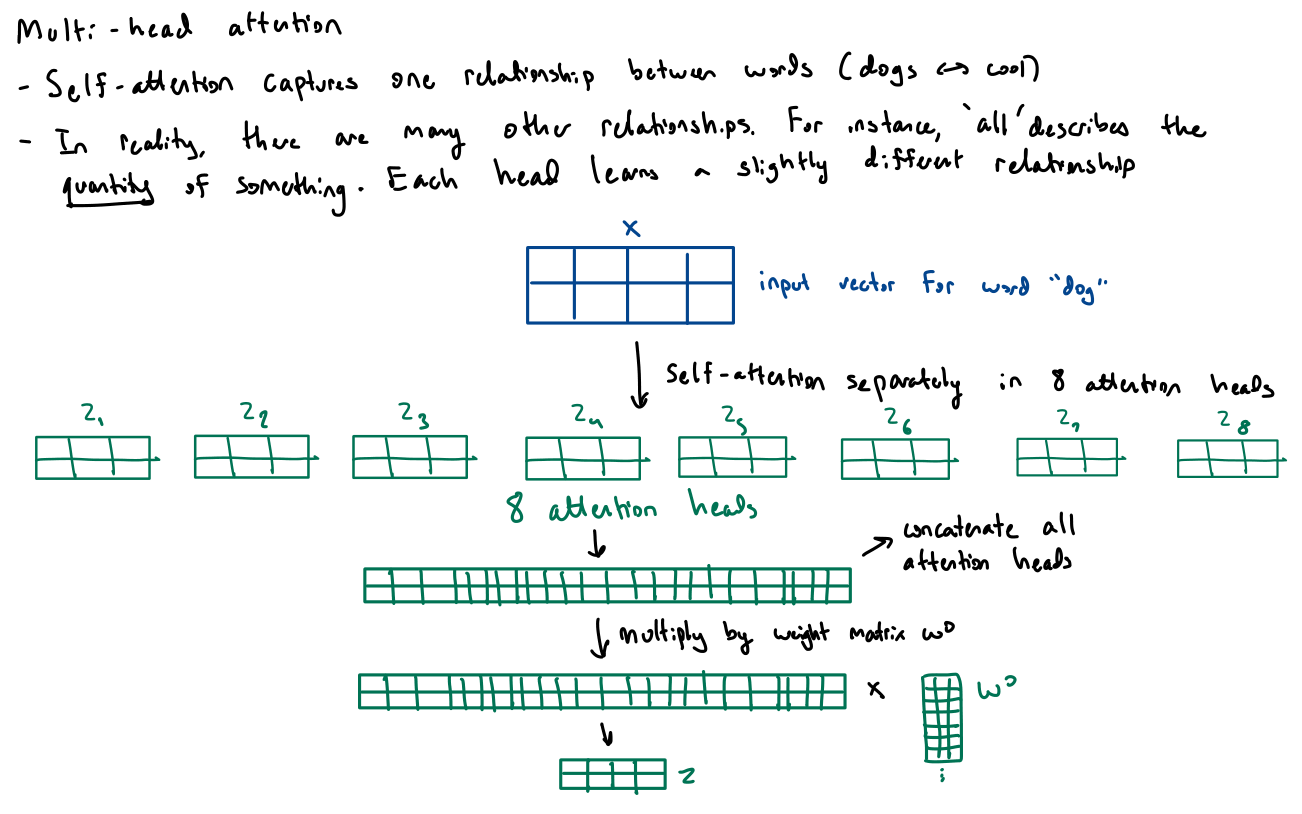 Multi-head attention
- Self-attention captures one relationship between words (dogs ↔ cool)
- In reality, there are many other relationships. For instance, 'all' describes the
quantity of something. Each head learns a slightly different relationship
X
input vector for word "dog"
Self-attention separately in 8 attention heads
Z1 Z2 Z3 Z4 Z5 Z6 Z7 Z8
8 attention heads
concatenate all
attention heads
multiply by weight matrix W⁰
x W⁰
Z